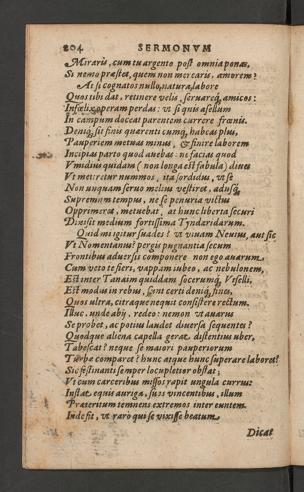 204 SERMONVM
Miraris, cum tu argento post omnia ponas,
Si nemo præstet, quem non mercaris, amorem?
At si cognatos nullo, natura, labore
Quos tibi dat, retinere velis, servareq́; amicos:
Infœlix operam perdas: ut si quis asellum
In campum doceat parentem currere frœnis.
Deniq; sit finis quærendi cumq́; habeas plus,
Pauperiem metuas minus, & finire laborem
Incipias parto quod avebas: ne facias quod
Vmidius quidam (non longa est fabula) dives
Vt metiretur nummos, ita sordidus, vt se
Non unquam servo melius vestiret, adusq;
Supremum tempus, ne se penuria victus
Opprimeret, metuebat, at hunc liberta securi
Divisit medium fortissima Tyndaridarum.
Quid mi igitur suades? ut vivam Nevius, aut sic
Vt Nomentanus? pergis pugnantia secum
Frontibus adversis componere non ego avarum
Cum veto te fieri, vappam iubeo, ac nebulonem,
Est inter Tanaim quiddam socerumq́; Viselli,
Est modus in rebus, sunt certi deniq; fines,
Quos ultra, citraque nequit consistere rectum.
Illuc, unde abij, redeo: nemon ut avarus
Se probet, ac potius laudet diversa sequentes?
Quodque aliena capella gerat distentius uber,
Tabescat? neque se maiori pauperiorum
Turbæ comparet? hunc atque hunc superare laboret?
Sic festinanti semper locupletior obstat;
Vt cum carceribus missos rapit ungula currus:
Instat equis auriga, suis vincentibus, illum
Præteritum temnens extremos inter euntem.
Inde fit, ut raro qui se vixisse beatum
Dicat